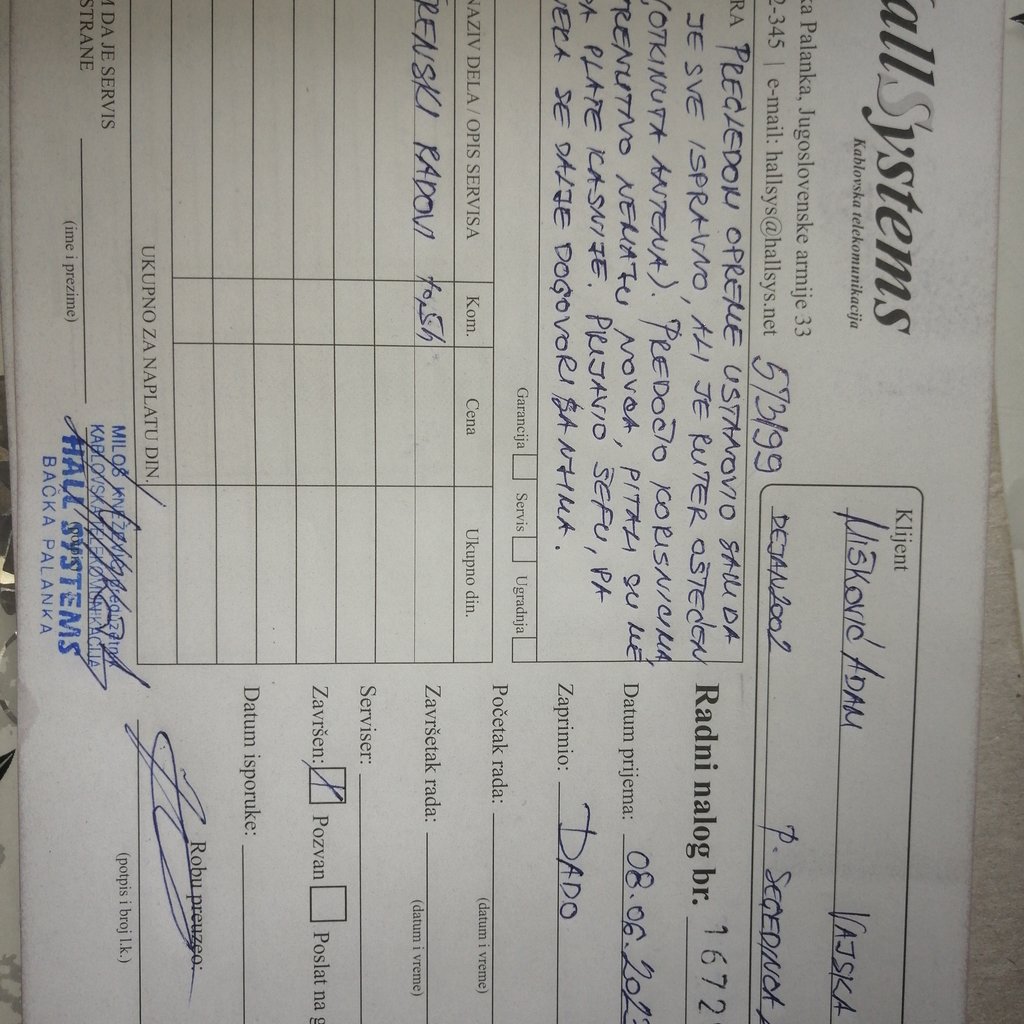 allSystems
Kablovska telekomunikacija
ka Palanka, Jugoslovenske armije 33
2-345 | e-mail: hallsys@hallsys.net
573/99
Klijent
MIŠKOVIĆ ADAM VAJSKA
DEJAN2002 P. SEGEDINCA
RA PREGLEDOM OPREME USTANOVIO SAM DA
JE SVE ISPRAVNO, ALI JE RUTER OŠTEĆEN
(OTKINUTA ANTENA). PREDOČIO KORISNICIMA
TRENUTNO NEMAJU NOVCA, PITALI SU ME
DA PLATE KASNIJE. PRIJAVIO ŠEFU, PA
NEKA SE DALJE DOGOVORI SA NJIMA.
Garancija Servis Ugradnja
NAZIV DELA / OPIS SERVISA Kom. Cena Ukupno din.
TERENSKI RADOVI
UKUPNO ZA NAPLATU DIN.
M DA JE SERVIS
STRANE
(ime i prezime)
MILOŠ KNEŽEVIĆ preduzetnik
KABLOVSKA TELEKOMUNIKACIJA
HALL SYSTEMS
BAČKA PALANKA
Radni nalog br. 1672
Datum prijema: 08.06.202
Zaprimio: DADO
Početak rada:
(datum i vreme)
Završetak rada:
(datum i vreme)
Serviser:
Završen: X Pozvan Poslat na
Datum isporuke:
Robu preuzeo:
(potpis i broj l.k.)